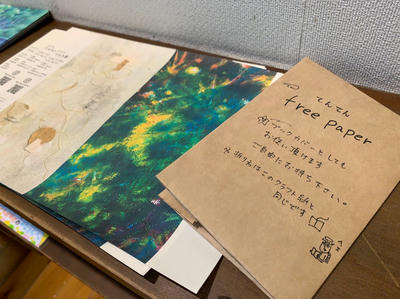 てんてん
free paper
ブックカバーとしても
お使い頂けます
ご自由にお持ち下さい。
※折り方はこのクラフト紙と
同じです